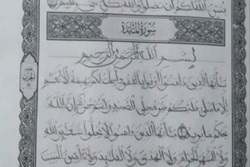 يبين الله لكم أن تضلوا والله بكل شيء عليم
سورة المائدة
بسم الله الرحمن الرحيم
يأيها الذين ءامنوا أوفوا بالعقود أحلت لكم بهيمة الأنعم
إلا ما يتلى عليكم غير محلي الصيد وأنتم حرم إن الله
يحكم ما يريد يأيها الذين ءامنوا لا تحلوا شعئر الله
ولا الشهر الحرام ولا الهدي ولا القلئد ولا ءامين البيت